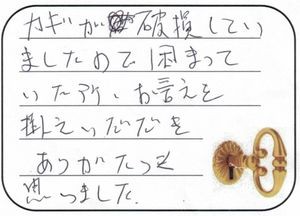 カギが破損してい
ましたので困まって
いた所、お言えを
掛えいただき
ありがたっく
思いました.